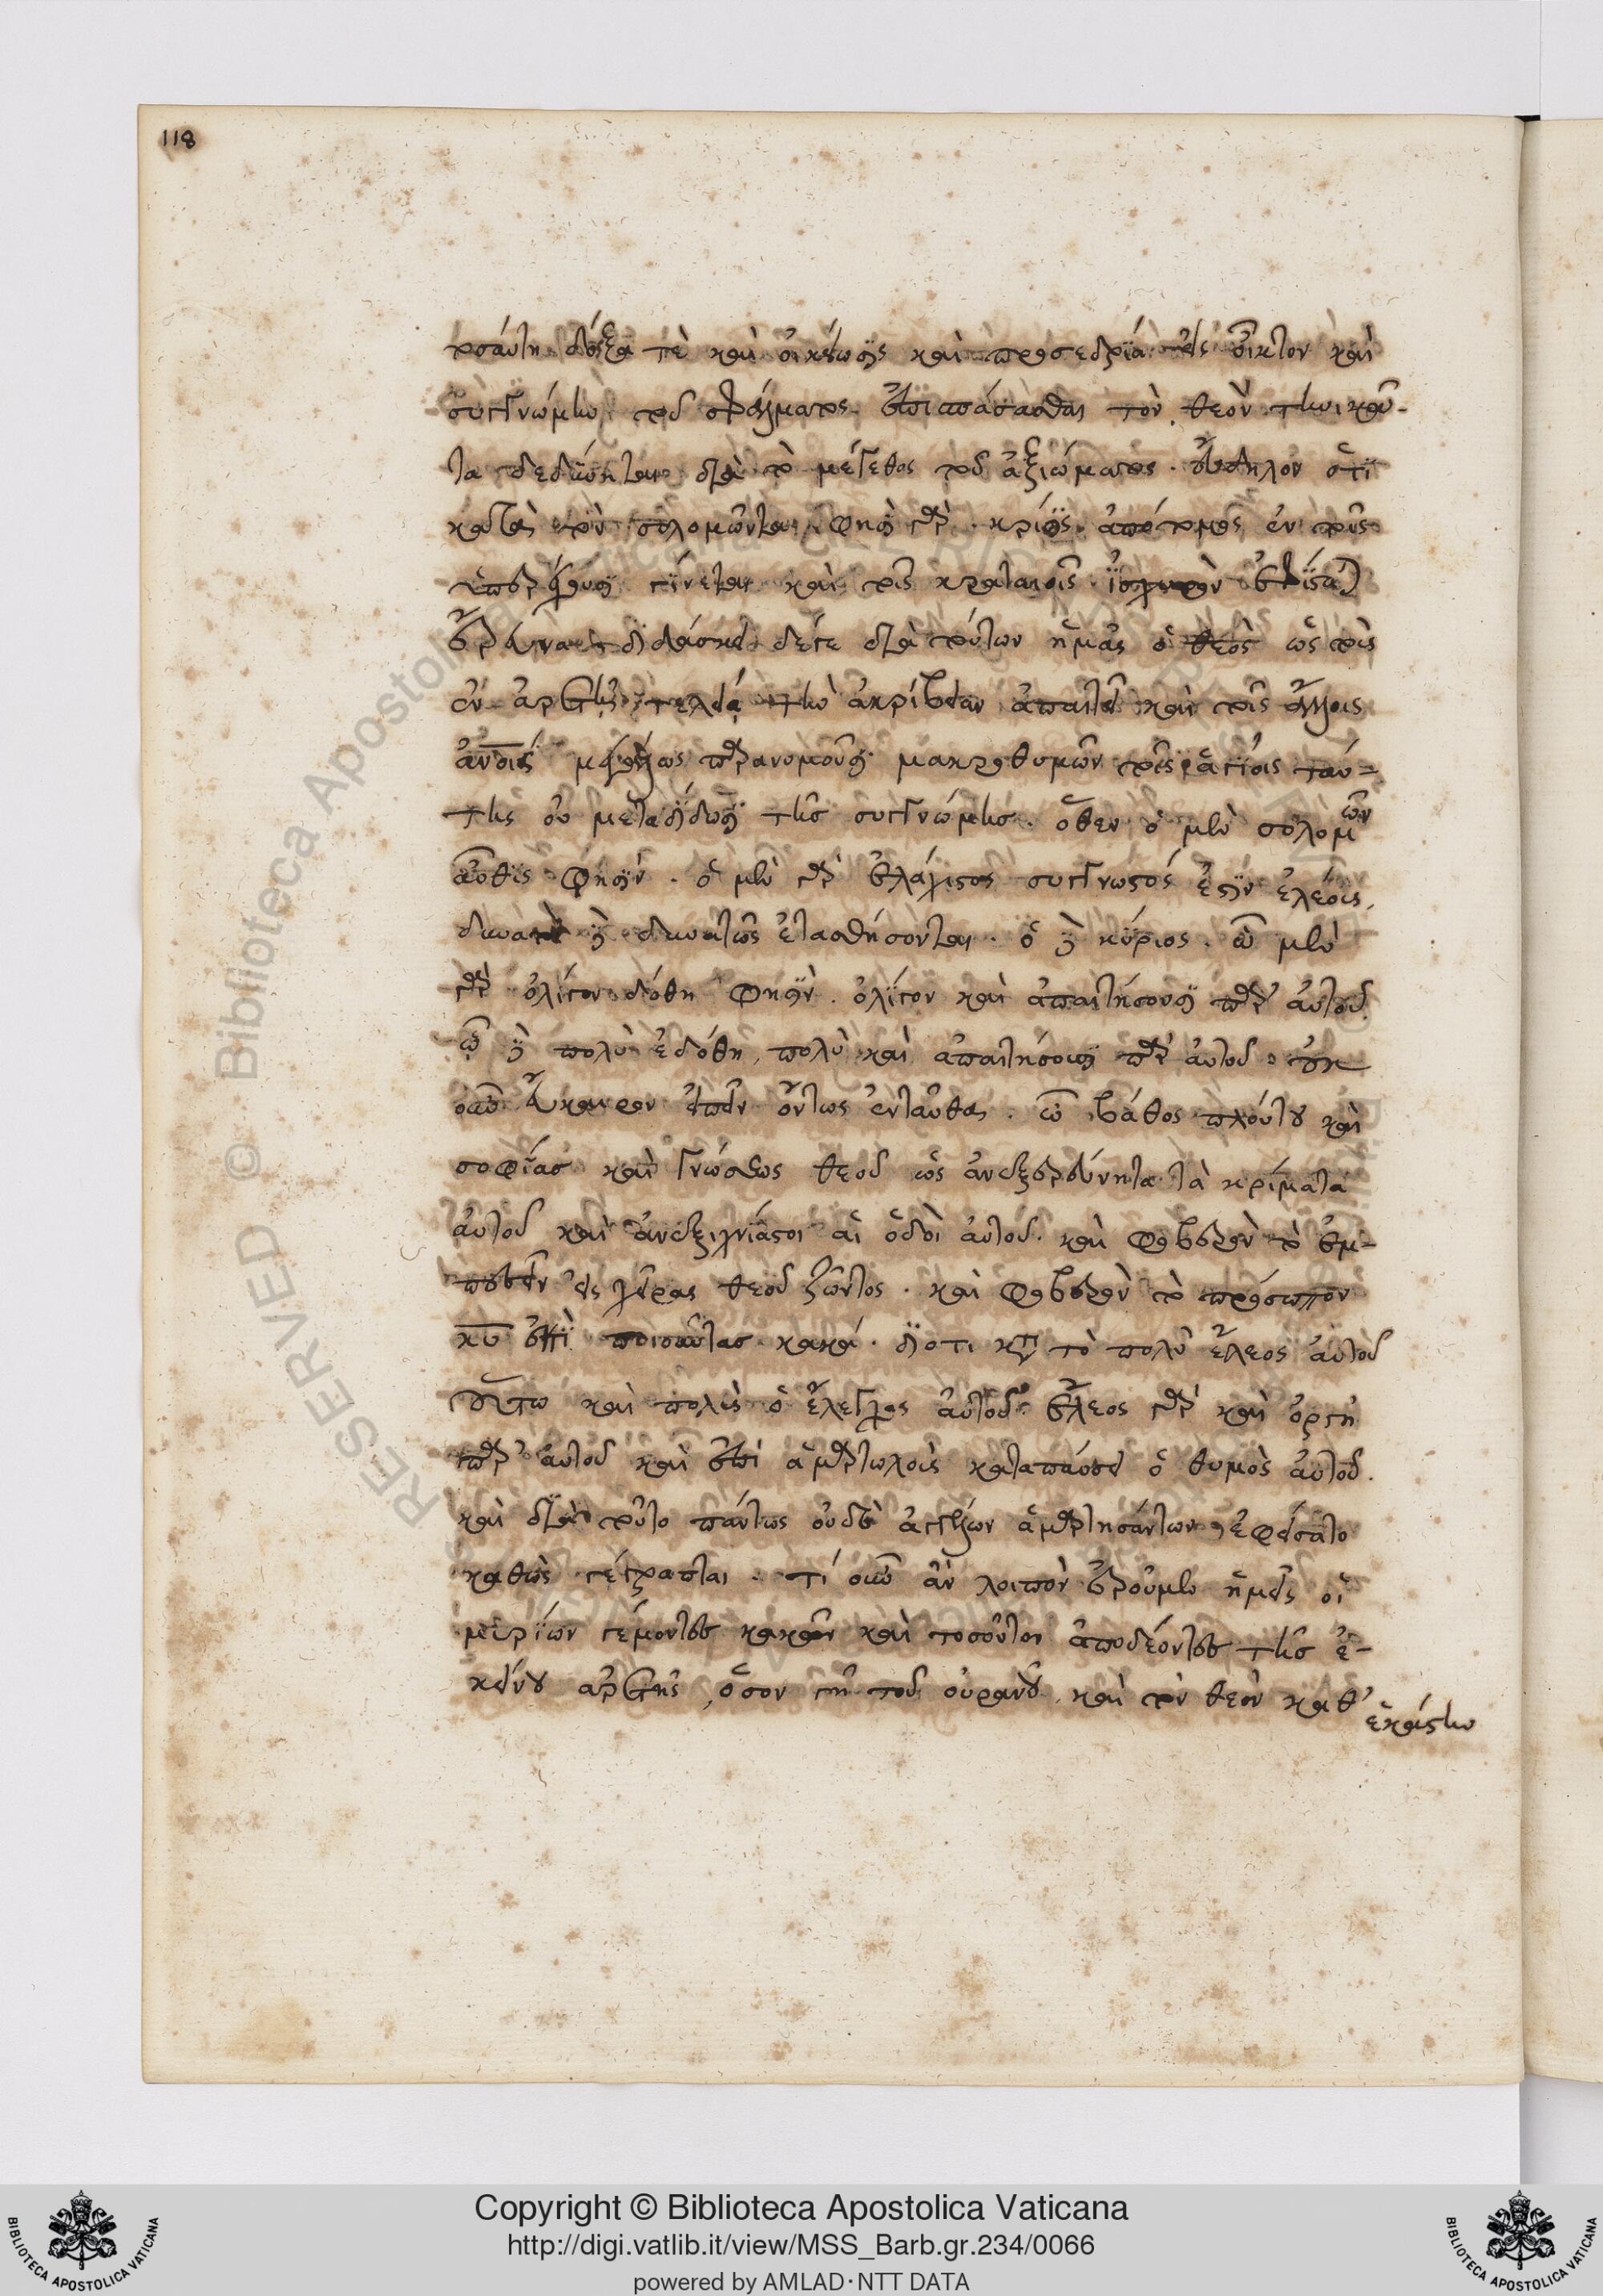 118
τοσαύτη δόξα τὲ καὶ οἰκείωσις καὶ προσεδρία εἰς οἶκτον καὶ
συγγνώμην τοῦ σφάλματος ἐπισπάσασθαι τὸν θεὸν τηνικαῦ-
τα δεδύνηται διὰ τὸ μέγεθος τοῦ ἀξιώματος. εὔδηλον ὅτι
κατὰ τὸν σολομῶντα φησὶ γὰρ. κρίσις ἀπότομος ἐν τοῖς
ὑπερέχουσι γίνεται καὶ τοῖς κραταιοῖς ἰσχυρὰν ἐφίσταται
ἔρευνα διδάσκει δέ γε διὰ τούτων ἡμᾶς ὁ θεὸς ὡς τοῖς
ἐν ἀρετῇ τελεία τὴν ἀκρίβειαν ἀπαιτεῖ καὶ τοῖς ἄλλοις
ἀνοις μεγάλως παρανομοῦσι μακροθυμῶν τοῖς ἁγίοις ταύ-
της οὐ μεταδίδωσι τῆς συγγνώμης. ὅθεν ὁ μὲν σολομῶν
αὖθις φησὶν. ὁ μὲν γὰρ ἐλάχιστος συγγνωστός ἐστὶν ἐλέοις,
δυνατοὶ δὲ δυνατῶς ἐτασθήσονται. ὁ δὲ κύριος. ὧ μὲν
γὰρ ὀλίγον δόθη φησὶν. ὀλίγον καὶ ἀπαιτήσουσι παρ' αὐτοῦ.
ᾧ δὲ πολὺ ἐδόθη, πολὺ καὶ ἀπαιτήσουσι παρ' αὐτοῦ. οὐκ
οὖν εὔκαιρον εἰπεῖν ὄντως ἐνταῦθα. ὦ βάθος πλούτου καὶ
σοφίας καὶ γνώσεως θεοῦ ὡς ἀνεξερεύνητα τὰ κρίματα
αὐτοῦ καὶ ἀνεξιχνίαστοι αἱ ὁδοὶ αὐτοῦ. καὶ φοβερὸν τὸ ἐμ-
πεσεῖν εἰς χεῖρας θεοῦ ζῶντος. καὶ φοβερὸν τὸ πρόσωπον
κυ ἐπὶ ποιοῦντας κακά. διότι κατὰ τὸ πολὺ ἔλεος αὐτοῦ
οὕτω καὶ πολὺς ὁ ἔλεγχος αὐτοῦ. ἔλεος γὰρ καὶ ὀργὴ
παρ' αὐτοῦ καὶ ἐπὶ ἁμαρτωλοὺς καταπαύσει ὁ θυμὸς αὐτοῦ.
καὶ διὰ τοῦτο πάντως οὐδὲ ἀγγέλων ἁμαρτησάντων ἐφείσατο
καθὼς γέγραπται. τί οὖν ἂν λοιπὸν ἐροῦμεν ἡμεῖς οἱ
μυρίων γέμοντες κακῶν καὶ τοσοῦτον ἀποδέοντες τῆς ἐ-
κείνου ἀρετῆς, ὅσον γῆ τοῦ οὐρανοῦ. καὶ τὸν θεὸν καθ'
ἑκάστην
Copyright © Biblioteca Apostolica Vaticana
http://digi.vatlib.it/view/MSS_Barb.gr.234/0066
powered by AMLAD·NTT DATA